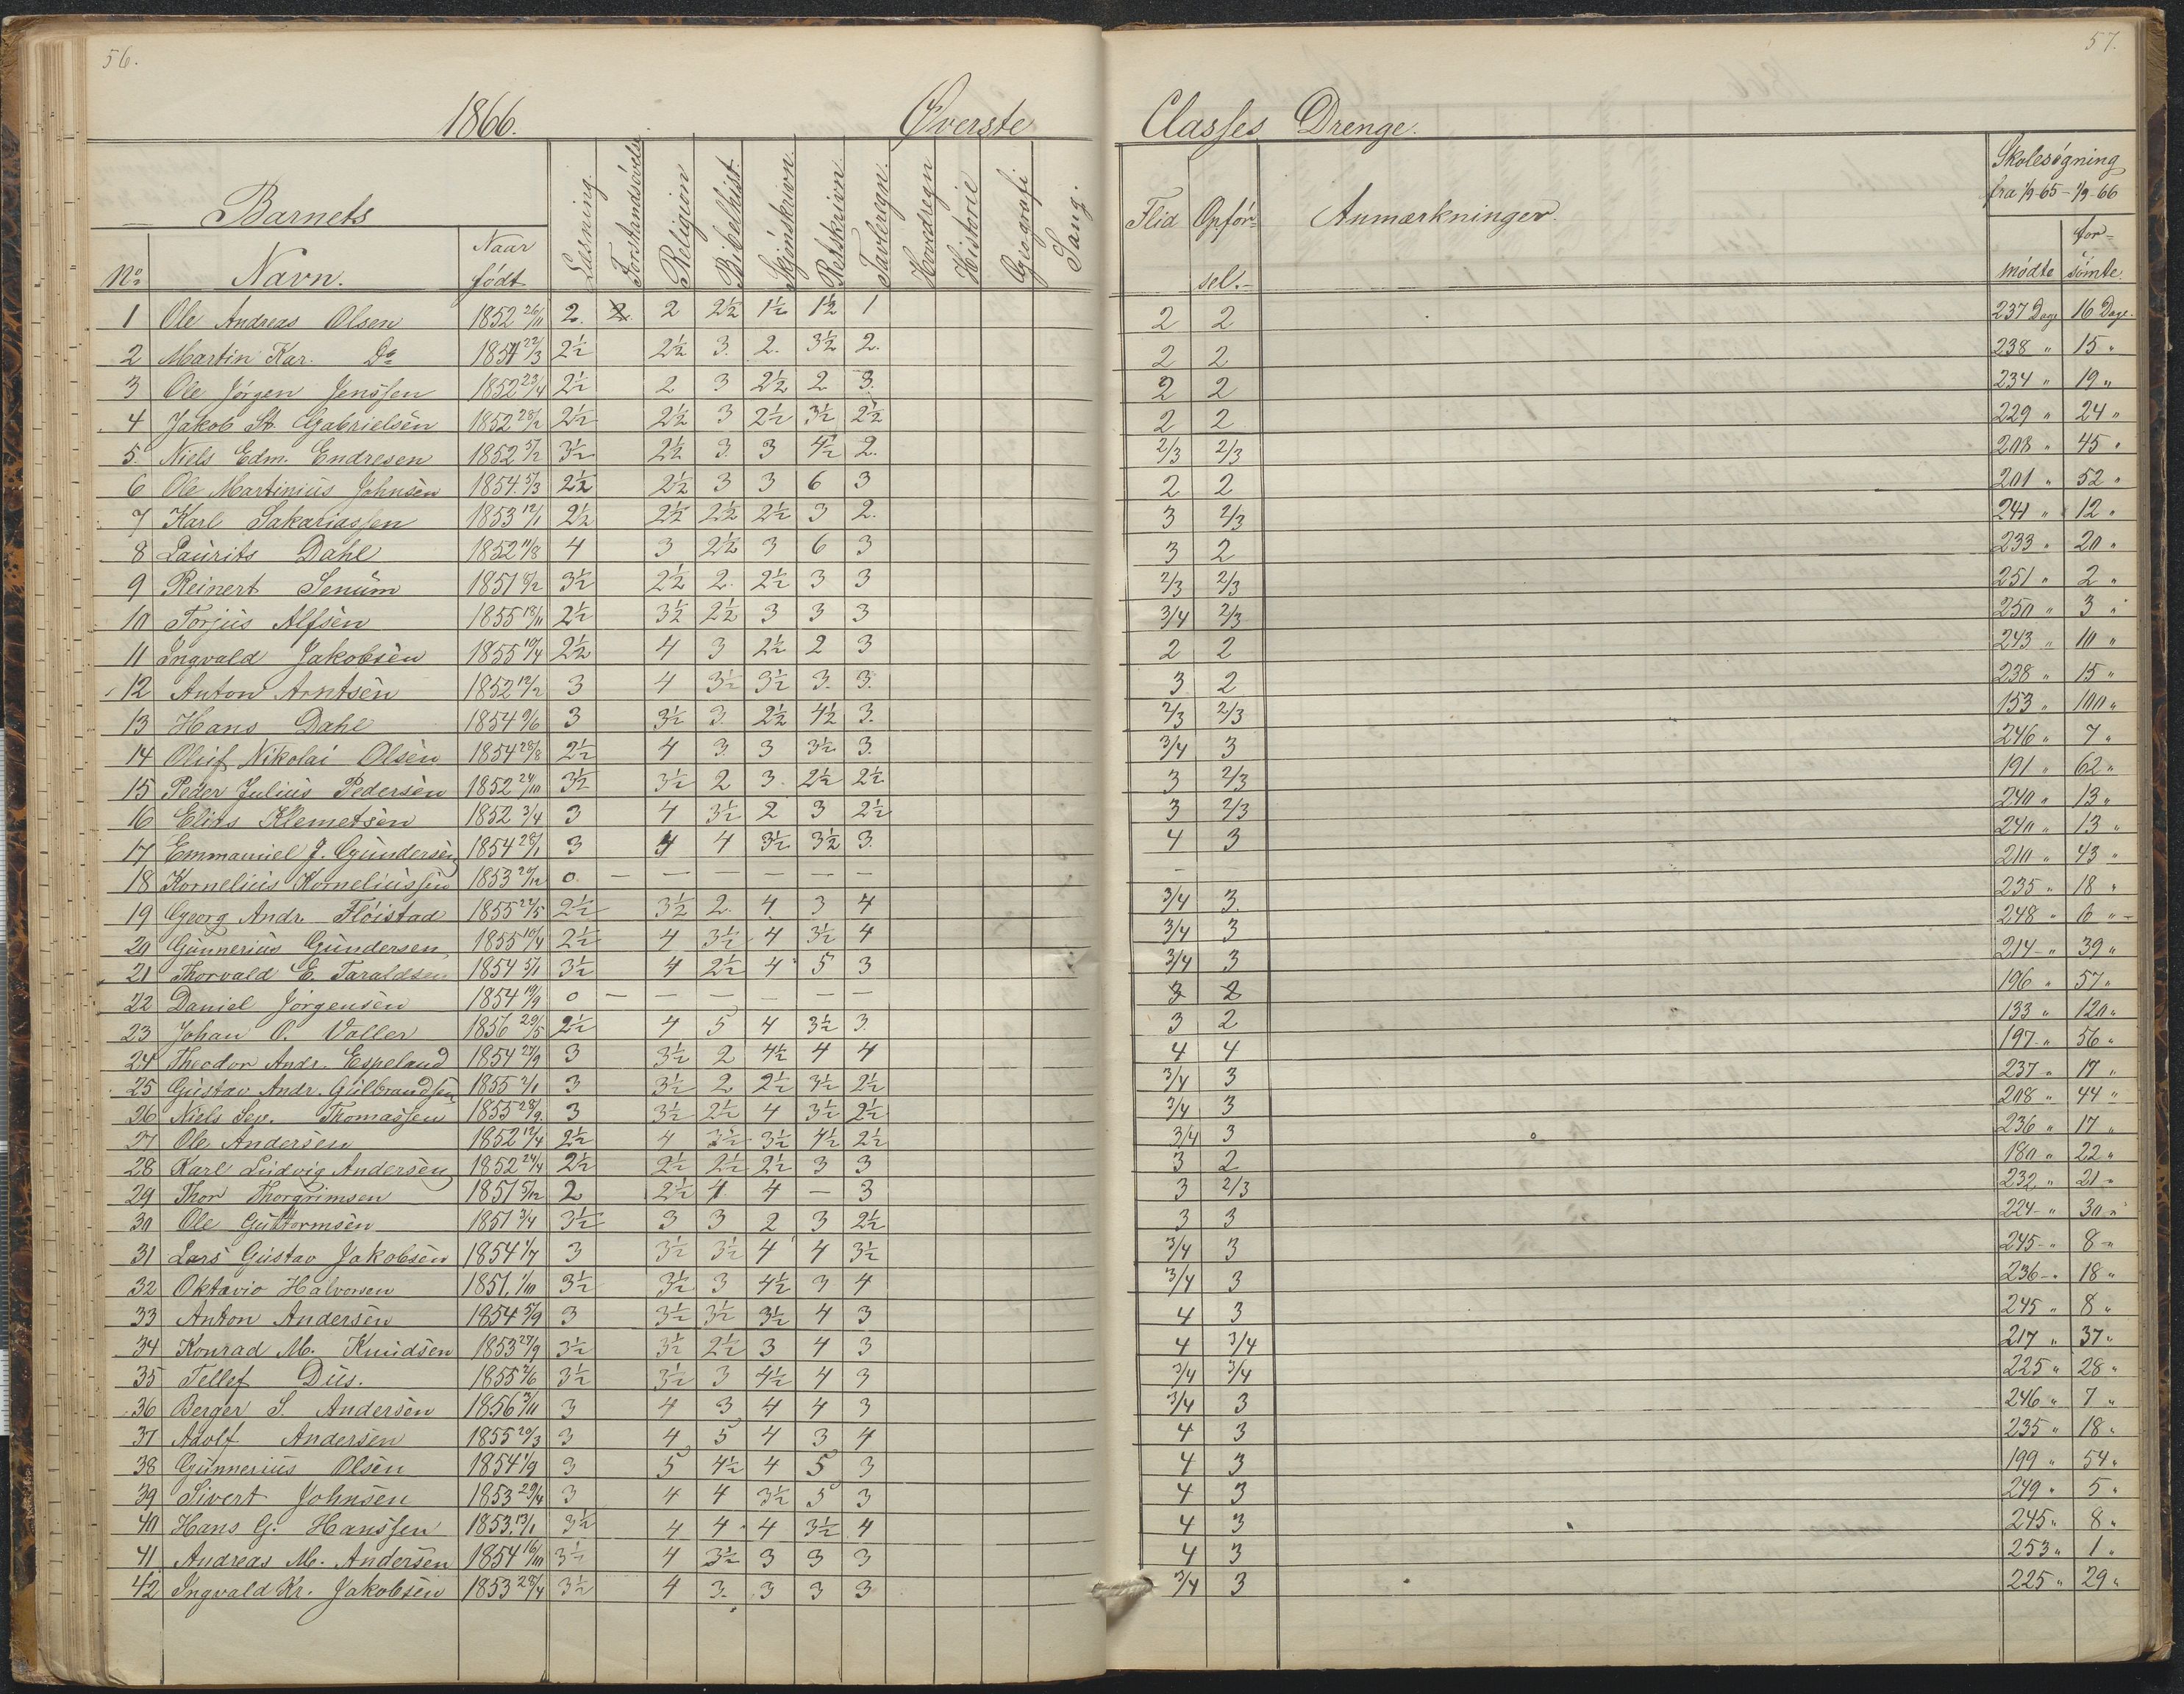 56.
57.
1866. Øverste Classes Drenge.
Barnets
No Navn. Naar født Læsning. Forstandsøvelse Religion Bibelhist. Skjønskrivn. Retskrivn. Tavleregn. Hovedregn Historie Geografi Sang. Flid Opførsel. Anmærkninger. Skolesøgning fra 1/9 65 - 1/9 66 mødte forsømte.
1 Ole Andreas Olsen 1852 26/11 2. 2 2 2½ 1½ 1½ 1 2 2 237 Dage 16 Dage.
2 Martin Kar. Do 1854 22/3 2½ 2½ 3. 2. 3½ 2. 2 2 238 " 15 "
3 Ole Jørgen Jenssen 1852 23/4 2½ 2 3 2½ 2 3. 2 2 234 " 19 "
4 Jakob St. Gabrielsen 1852 28/2 2½ 2½ 3 2½ 3½ 2½ 2 2 229 " 24 "
5. Niels Edm. Endresen 1852 5/2 3½ 2½ 3. 3 4½ 2. 2/3 2/3 208 " 45 "
6 Ole Martinius Johnsen 1854. 5/3 2½ 2½ 3 3 6 3 2 2 201 " 52 "
7 Karl Sakariassen 1853 12/1 2½ 2½ 2½ 2½ 3 2. 3 2/3 241 " 12 "
8 Laurits Dahl 1852 11/8 4 3 2½ 3 6 3 3 2 233 " 20 "
9 Reinert Senum 1851 8/12 3½ 2½ 2. 2½ 3 3 2/3 2/3 251 " 2 "
10 Torjus Alfsen 1855 18/11 2½ 3½ 2½ 3 3 3 3/4 2/3 250 " 3 "
11 Ingvald Jakobsen 1855 10/4 2½ 4 3 2½ 2 3 2 2 243 " 10 "
12 Anton Arntsen 1852 12/2 3 4 3½ 3½ 3. 3. 3 2 238 " 15 "
13 Hans Dahl 1854 9/6 3 3½ 3. 2½ 4½ 3. 2/3 2/3 153 " 100 "
14 Oluf Nikolai Olsen 1854 28/8 2½ 4 3. 3 3½ 3. 3/4 3 246 " 7 "
15 Peder Julius Pedersen 1852 24/10 3½ 3½ 2 3. 2½ 2½ 3 2/3 191 " 62 "
16 Elias Klemetsen 1852 3/4 3 4 3½ 2 3 2½ 3 2/3 240 " 13 "
17 Emmanuel J. Gundersen 1854 28/1 3 4 4 3½ 3½ 3. 4 3 240 " 13 "
18 Kornelius Korneliussen 1853 20/12 0 — — — — — — - 210 " 43 "
19 Georg Andr. Fløistad 1855 24/5 2½ 3½ 2. 4 3 4 3/4 3. 235 " 18 "
20 Gunnerius Gundersen 1855 10/4 2½ 4 3½ 4 3½ 4 3/4 3 248 " 6 "
21 Thorvald E. Taraldsen 1854 5/1 3½ 4 2½ 4 5 3 3/4 3 214 " 39 "
22 Daniel Jørgensen 1854 19/9 0 — — — — — — 3 2 196 " 57 "
23 Johan O. Valler 1856 29/5 2½ 4 5 4 3½ 3. 3 2 133 " 120 "
24 Theodor Andr. Espeland 1854 27/9 3 3½ 2 4½ 4 4 4 4 197 " 56 "
25 Gustav Andr. Gulbrandsen 1855 2/1 3 3½ 2 2½ 3½ 2½ 3/4 3 237 " 17 "
26 Niels Sev. Thomassen 1855 28/9 3 3½ 2½ 4 3½ 2½ 3/4 3 208 " 44 "
27 Ole Andersen 1852 12/4 2½ 4 3½ 3½ 4½ 2½ 3/4 3 236 " 17 "
28 Karl Ludvig Andersen 1852 24/4 2½ 2½ 2½ 2½ 3 3 3 2 180 " 22 "
29 Thor Thorgrimsen 1851 5/12 2 2½ 4 4 — 3 3 2/3 232 " 21 "
30 Ole Guttormsen 1851 3/4 3½ 3 3 2 3 2½ 3 3 224 " 30 "
31 Lars Gustav Jakobsen 1854 1/7 3 3½ 3½ 4 4 3½ 3/4 3 245 " 8 "
32 Oktavio Halvorsen 1851. 1/10 3½ 3½ 3 4½ 3 4 3/4 3 236 " 18 "
33 Anton Andersen 1854 5/9 3 3½ 3½ 3½ 4 3 4 3 245 " 8 "
34 Konrad M. Knudsen 1853 27/9 3½ 3½ 2½ 3 4 3 4 3/4 217 " 37 "
35 Tellef Dus. 1855 2/6 3½ 3½ 3 4½ 4 3 3/4 3/4 225 " 28 "
36 Berger S. Andersen 1856 3/11 3 4 3 4 4 3 3/4 3 246 " 7 "
37 Adolf Andersen 1855 20/3 3 4 5 4 3 4 4 3 235 " 18 "
38 Gunnerius Olsen 1854 1/9 3 5 4½ 4 5 3 4 3 199 " 54 "
39 Sivert Johnsen 1853 29/4 3 4 4 3½ 5 3 4 3 249 " 5 "
40 Hans G. Hanssen 1853. 13/1 3½ 4 4 4 3½ 4 4 3 245 " 8 "
41 Andreas M. Andersen 1854 16/10 3½ 4 3½ 3 3 3 4 3 253 " 1 "
42 Ingvald Kr. Jakobsen 1853 28/4 3½ 4 3. 3 3 3 3/4 3 225 " 29 "